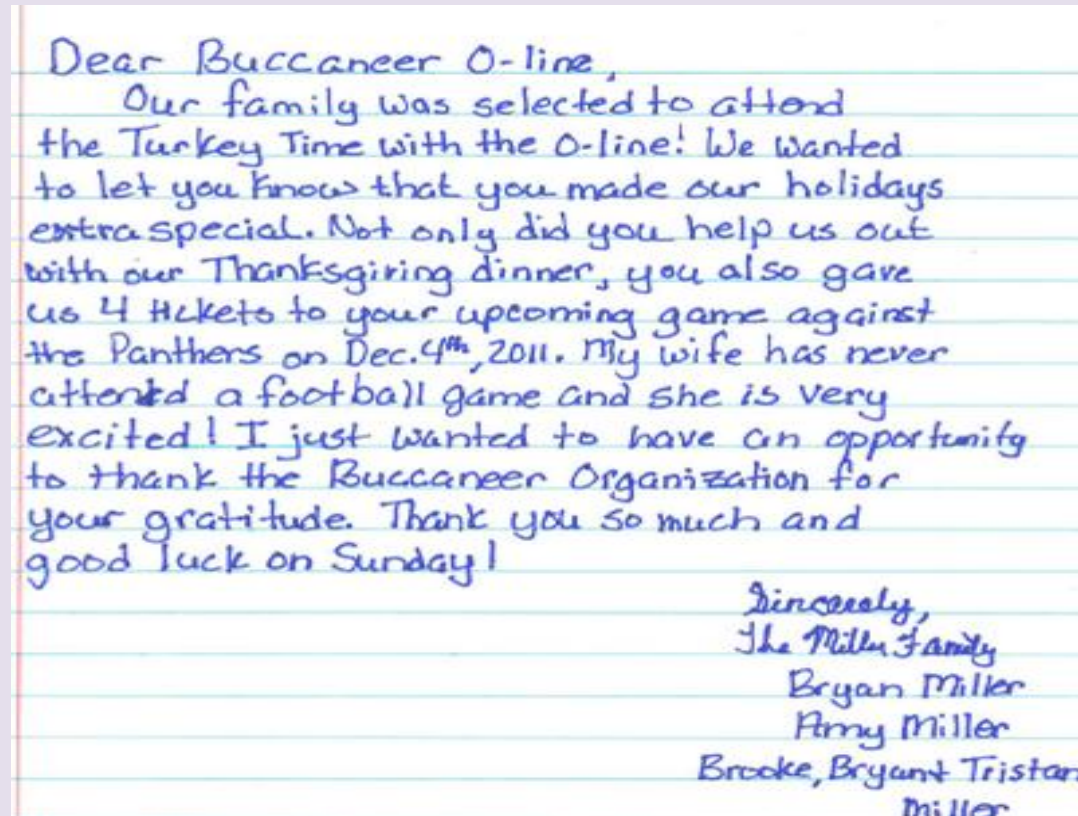 Dear Buccaneer O-line,
Our family was selected to attend
the Turkey Time with the O-line! We wanted
to let you know that you made our holidays
extra special. Not only did you help us out
with our Thanksgiving dinner, you also gave
us 4 tickets to your upcoming game against
the Panthers on Dec. 4th, 2011. My wife has never
attend a football game and she is very
excited! I just wanted to have an opportunity
to thank the Buccaneer Organization for
your gratitude. Thank you so much and
good luck on Sunday!
Sincerely,
The Miller Family
Bryan Miller
Amy Miller
Brooke, Bryant Tristan
Miller